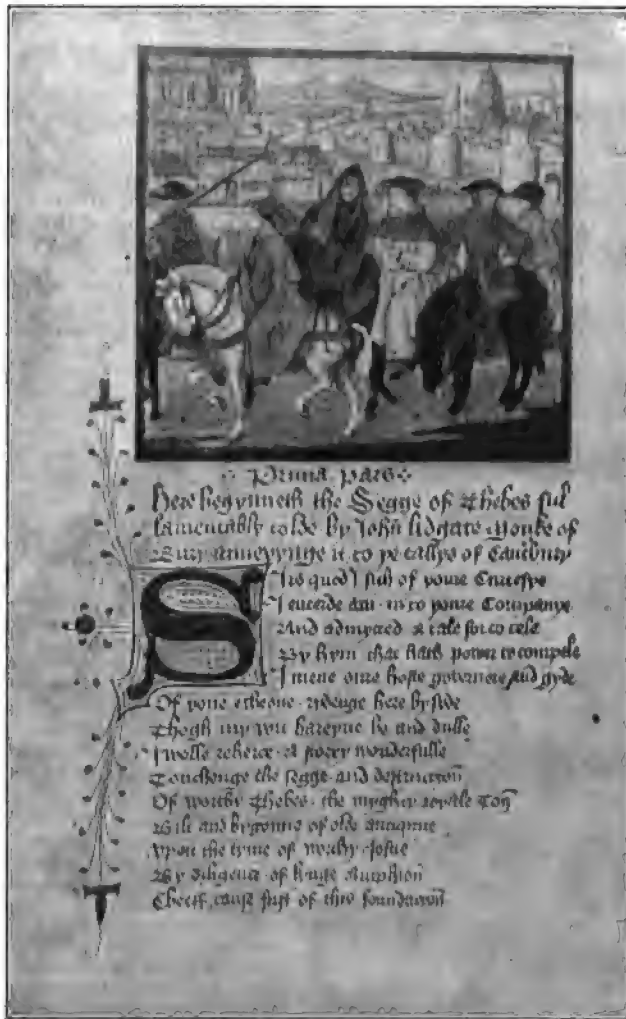 Prima pars
Here begynneth the Segge of Thebes ful
lamentably tolde by John lidgate Monke of
Bury anneyynge it to þe tallys of Caunt'bury
Sirs quod I sith of youre Curtesye
I entrede am in to youre Companye
And admytted a tale for to tele
By hym that hath power to compele
I mene oure hoste governere and gyde
Of yone echeone rideuge here by side
Thogh my wit bareyne be and dulle
I wolle reherce a story wonderfulle
Touchenge the segge and destruccion
Of worthy Thebes the myghty royale Ton
Bilt and bygonne of olde antiquite
Vpon the tyme of worthy Josue
By diligence of kinge Amphion
Cheeff cause first of this foundacion